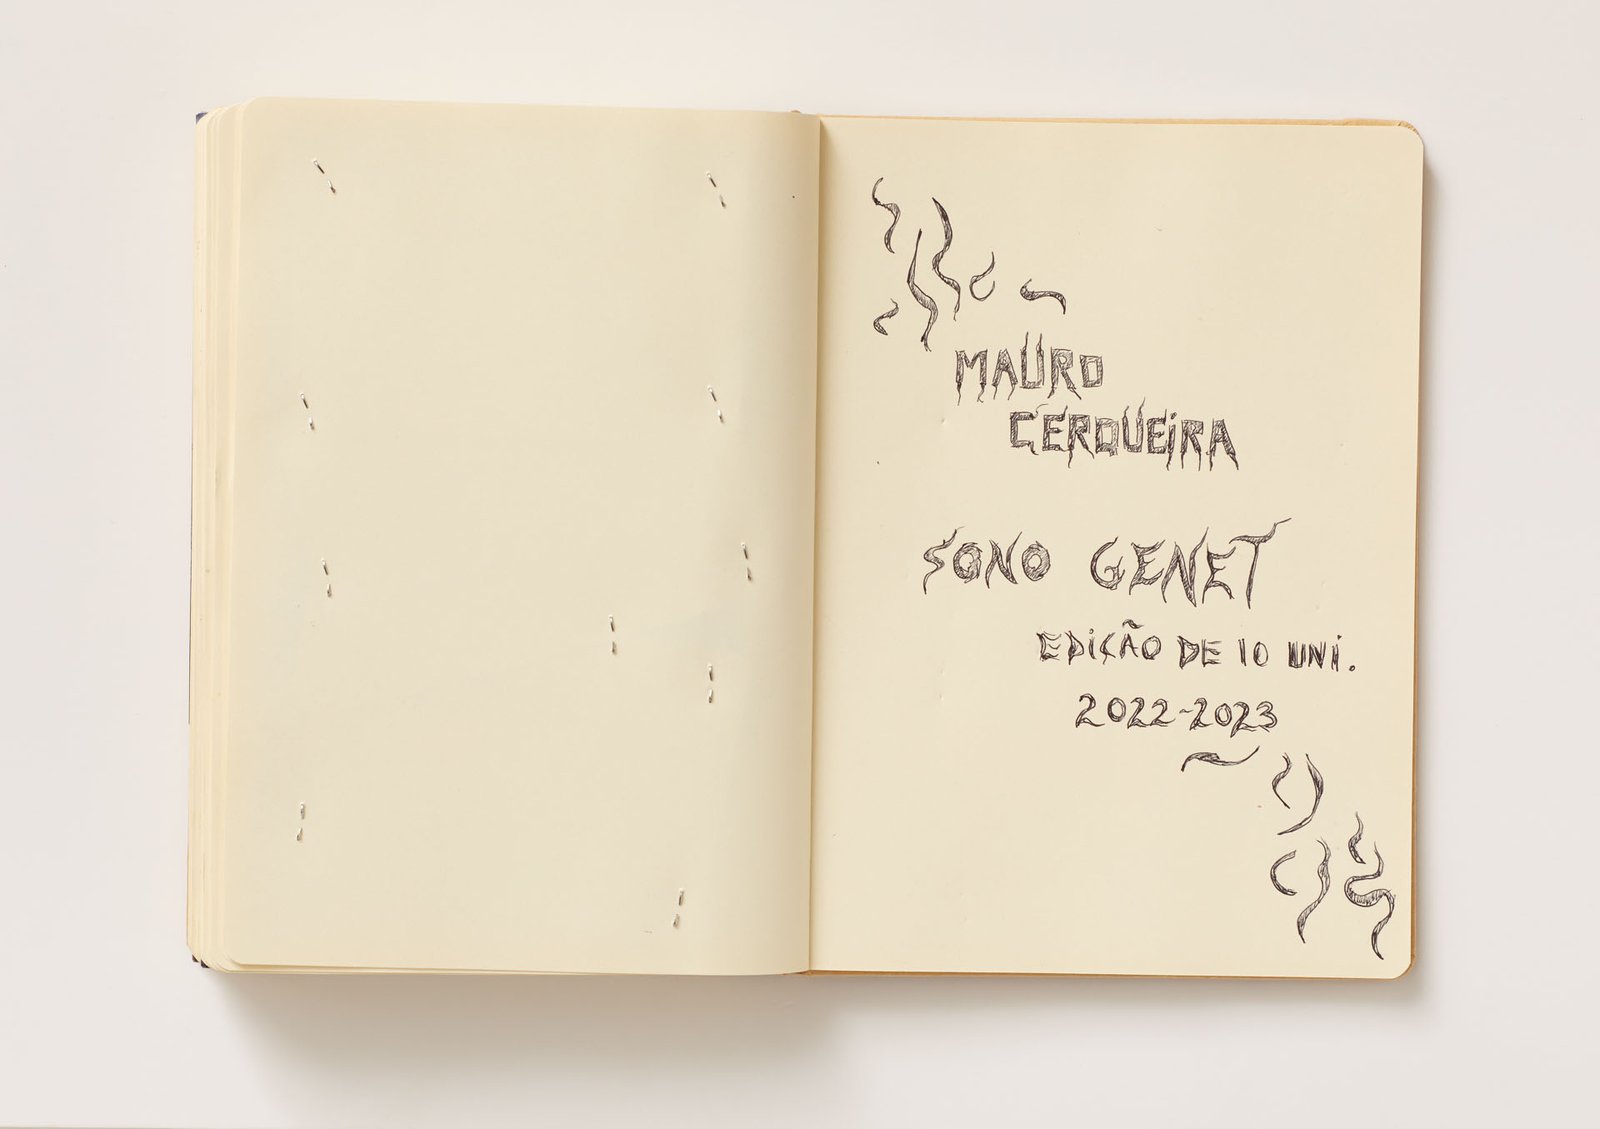 MAURO
CERQUEiRA
SONO GENET
EDiÇÃO DE 10 UNi.
2022-2023